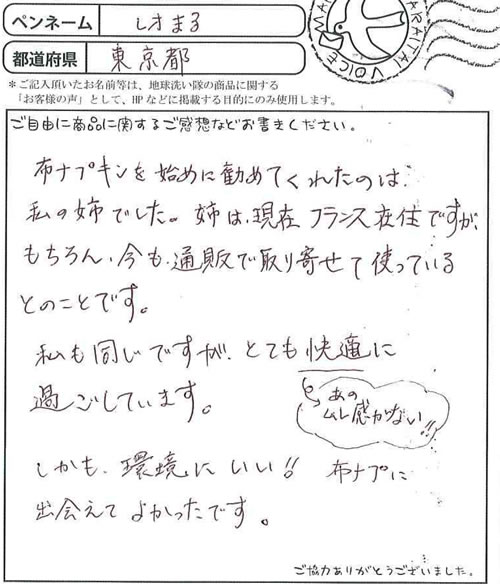 ペンネーム しおまる
都道府県 東京都
*ご記入頂いたお名前等は、地球洗い隊の商品に関する
「お客様の声」として、HPなどに掲載する目的にのみ使用します。
ARATAI VOICE
ご自由に商品に関するご感想などお書きください。
布ナプキンを始めに勧めてくれたのは、
私の姉でした。姉は、現在フランス在住ですが、
もちろん、今も、通販で取り寄せて使っている
とのことです。
私も同じですが、とても快適に
過ごしています。
あの
ムレ感がない!!
しかも、環境にいい!! 布ナプに
出会えてよかったです。
ご協力ありがとうございました。